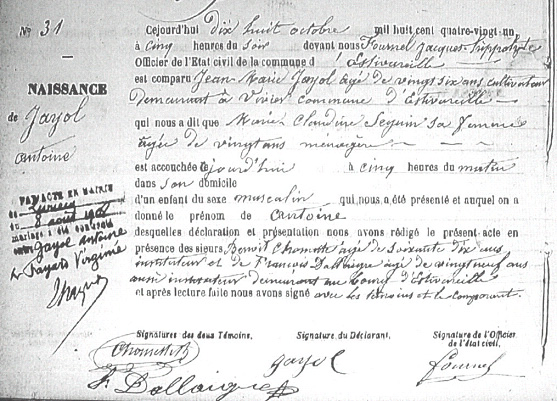 No 31
NAISSANCE
de Jayol
Antoine
PAR ACTE EN MAIRIE
de
du 8 août
mariage a été contracté
entre Jayol Antoine
et Virginie
Cejourd'hui dix huit octobre mil huit cent quatre-vingt-un,
à cinq heures du soir devant nous Fournel Jacques-hippolyte
Officier de l'Etat civil de la commune d'Estivareille
est comparu Jean-Marie Jayol âgé de vingt six ans cultivateur
demeurant à commune d'Estivareille
qui nous a dit que Marie Claudine Seguin sa femme
âgée de vingt ans menagère
est accouchée cejourd'hui à cinq heures du matin
dans son domicile
d'un enfant du sexe masculin qui nous a été présenté et auquel on a
donné le prénom de Antoine
desquelles déclaration et présentation nous avons rédigé le présent acte en
présence des sieurs, Benoit Chomette âgé de soixante dix ans
instituteur et de François Dallaigre âgé de vingt neuf ans
aussi instituteur demeurant au bourg d'Estivareille
et après lecture faite nous avons signé avec les témoins et le comparant.
Signatures des deux Témoins,
Signature du Déclarant,
Signature de l'Officier
de l'état civil,
Chomette
Gayol
Fournel
F. Dallaigre